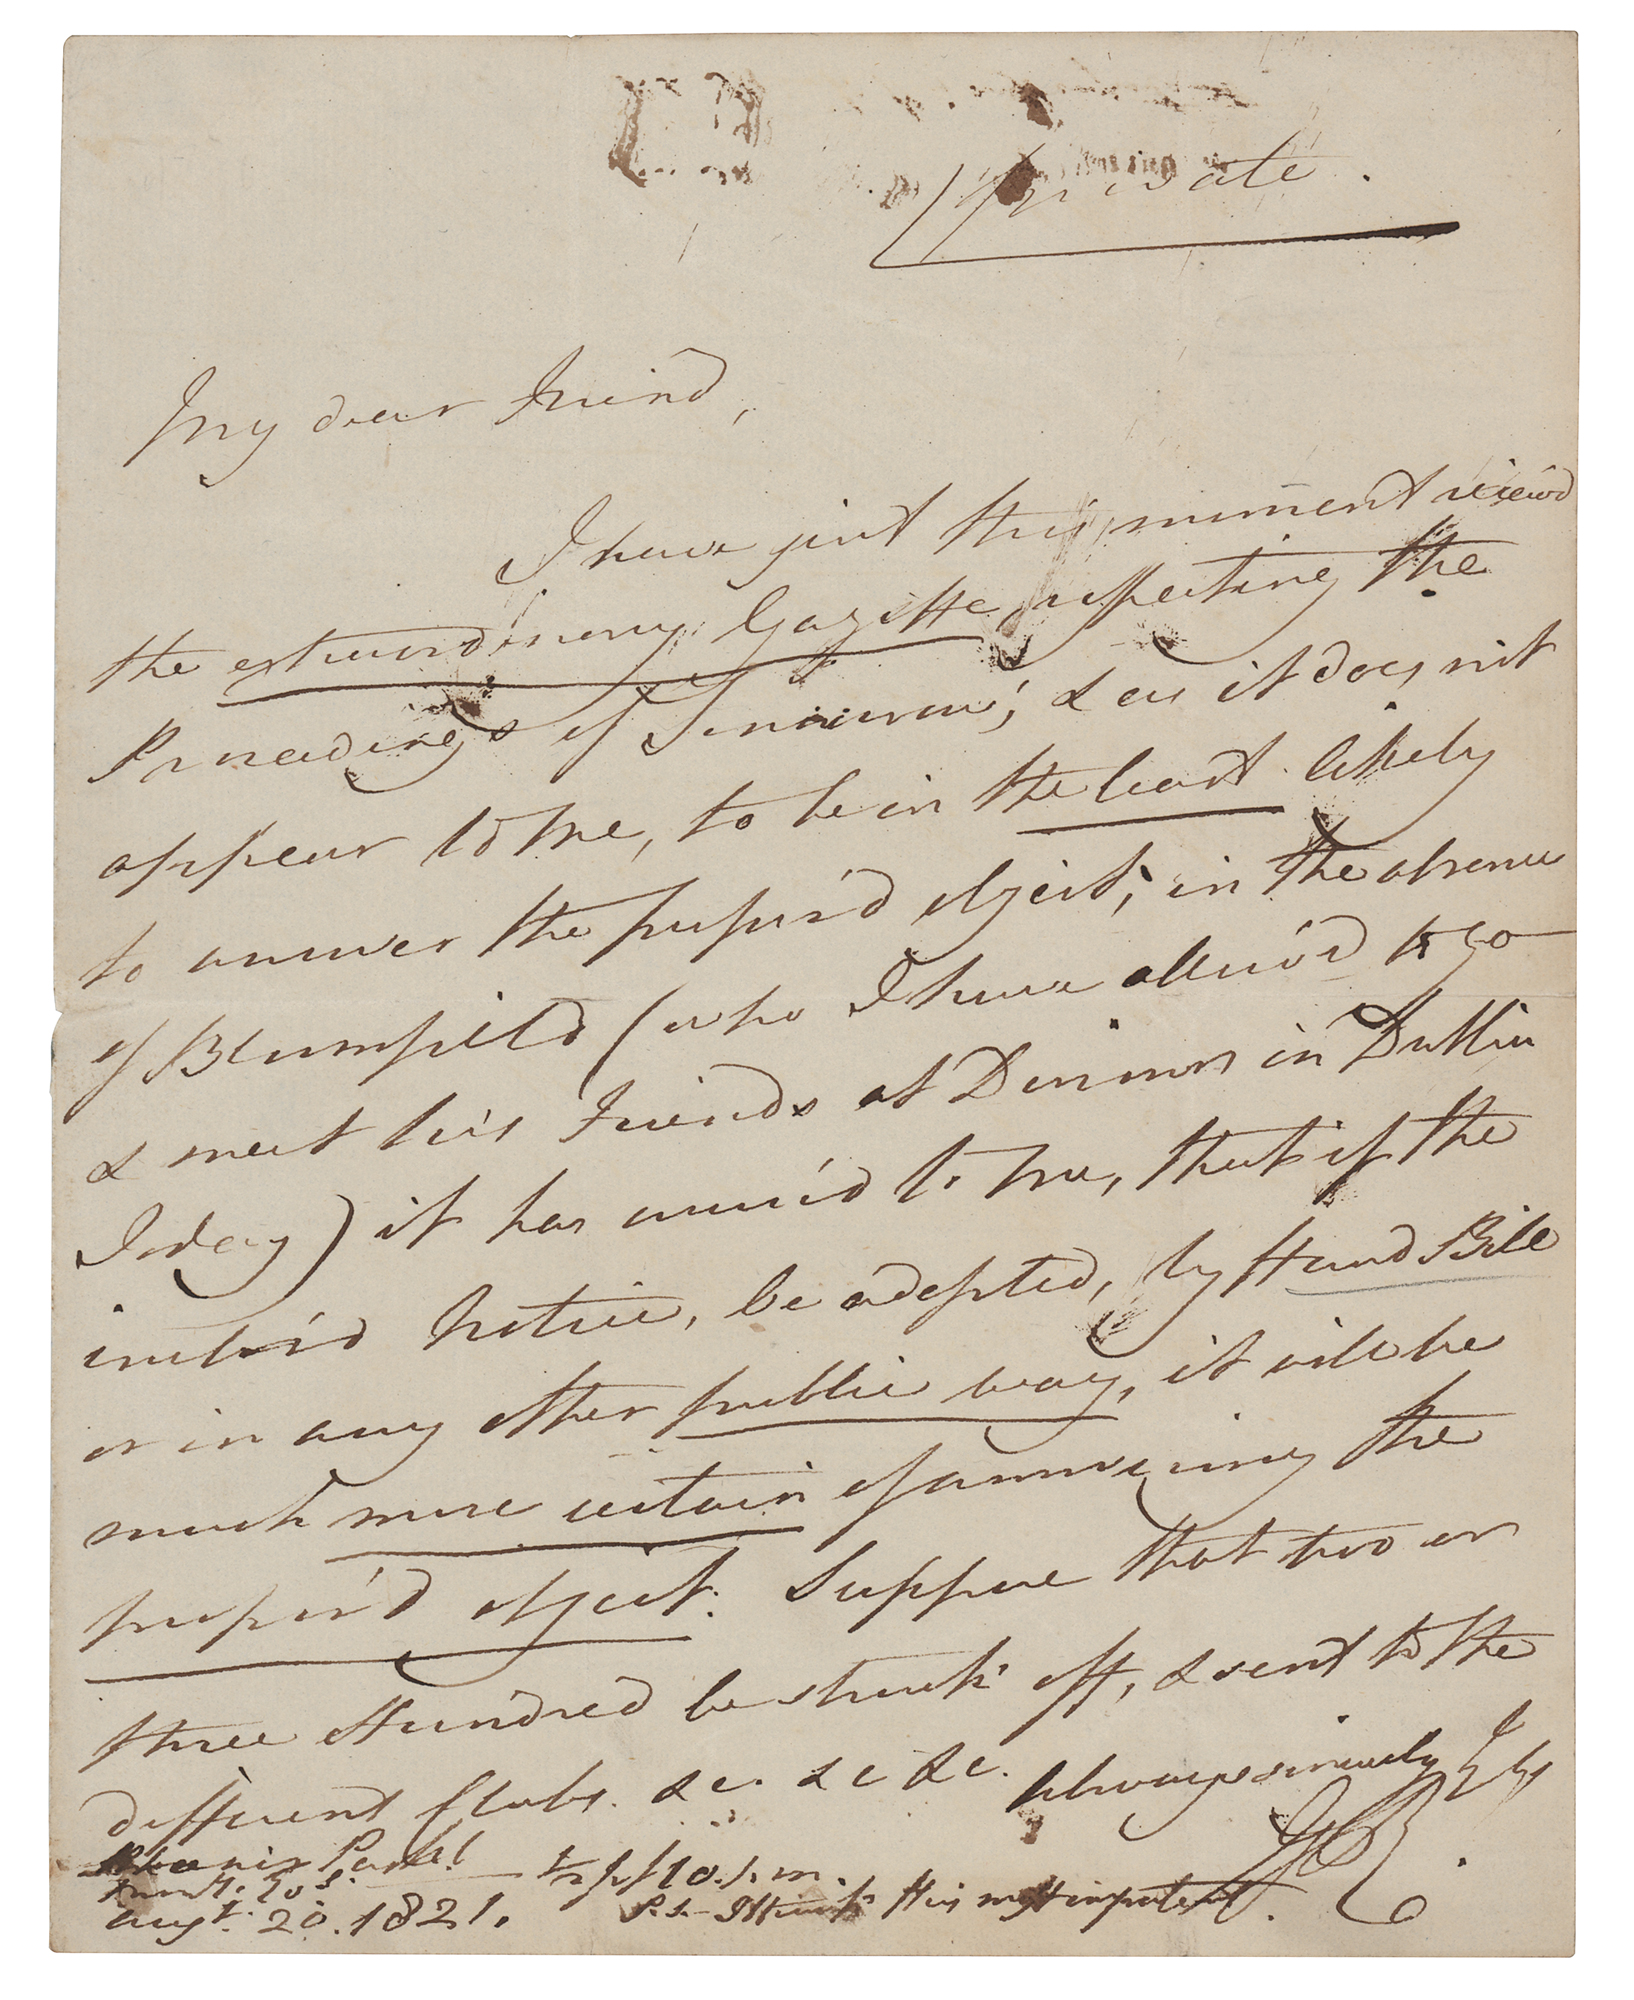 Private.
My dear Friend,
I have just this moment reciev'd
the extraordinary Gazette respecting the
Proceedings of Tomorrow; & as it does not
appear to me, to be in the least likely
to answer the purpos'd object; in the absence
of Blumfield (who I have allow'd to go
& meet his Friends at Dinner in Dublin
Today) it has occur'd to me, that if the
inclos'd Notice, be adopted, by Hand Bill
or in any other public way, it will be
much more certain of answering the
purpos'd object. Suppose that two or
three Hundred be struck off, & sent to the
different Clubs. &c. &c &c. Always sincerely Yrs
G R.
Phoenix Park!
½ pst 10. p. m.
Augt. 20. 1821.
P.S. I think this most important.